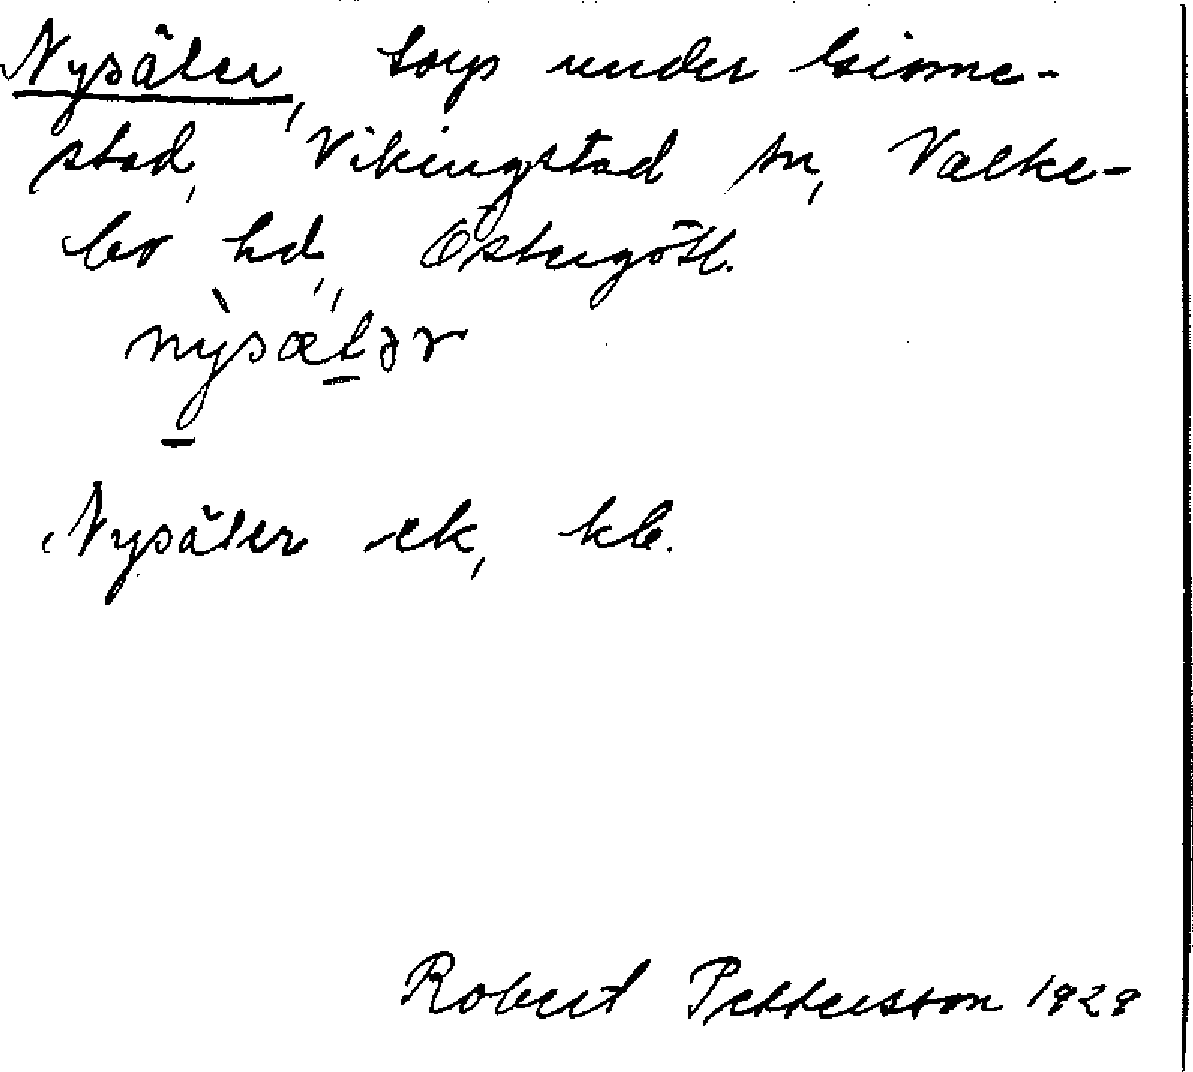 Nysäter, torp under Gisme-
stad, Vikingstad sn, Valke-
bo hd, Östergötl.
nỳsætər
Nysäter ek, kb.
Robert Pettersson 1928